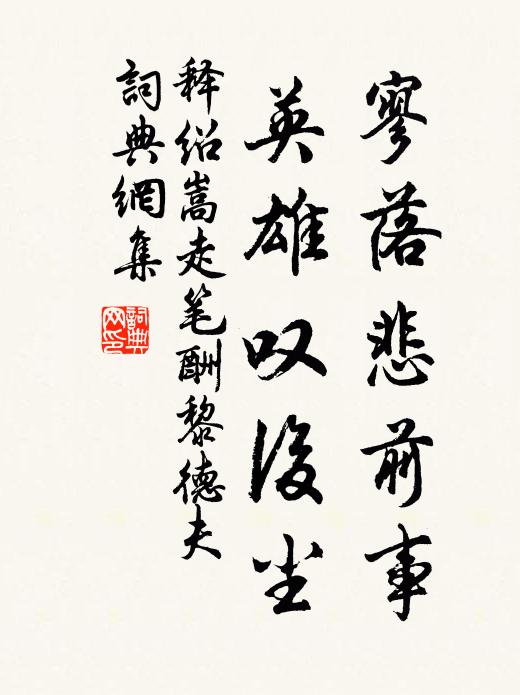 寥落悲前事
英雄叹後尘
释绍嵩走笔酬黎德夫
詞典網集
詞典
网印